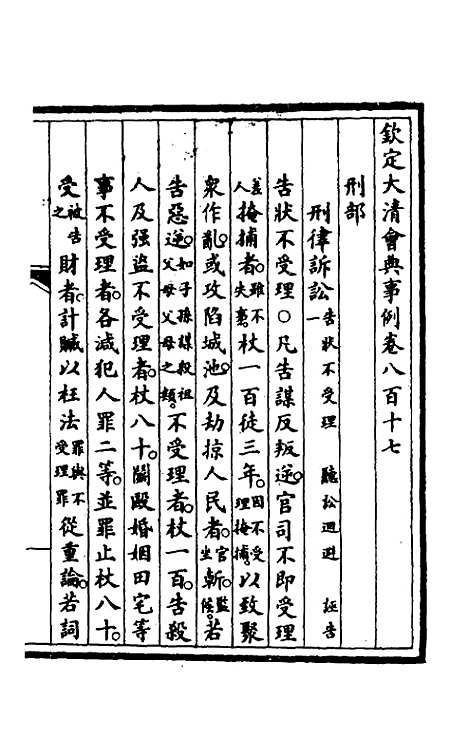 欽定大清會典事例卷八百十七
刑部
刑律訴訟一告狀不受理 聽訟迴避 誣告
告狀不受理○凡告謀反叛逆官司不即受理
差人掩捕者雖不失事杖一百徒三年因不受理掩捕以致聚
衆作亂或攻陷城池及劫掠人民者官坐斬監候若
告惡逆如子孫謀殺祖父母父母之類不受理者杖一百告殺
人及强盜不受理者杖八十鬭毆婚姻田宅等
事不受理者各減犯人罪二等並罪止杖八十
受被告之財者計贓以枉法罪與不受理罪從重論若詞